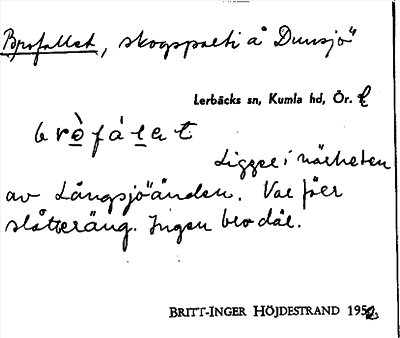 Brofallet, skogsparti å Dunsjö"
Lerbäcks sn, Kumla hd, Ör. l
brò̲fál̲et
Ligger i närheten
av Långsjöänden. Var förr
slåtteräng. Ingen bro där.
BRITT-INGER HÖJDESTRAND 1952